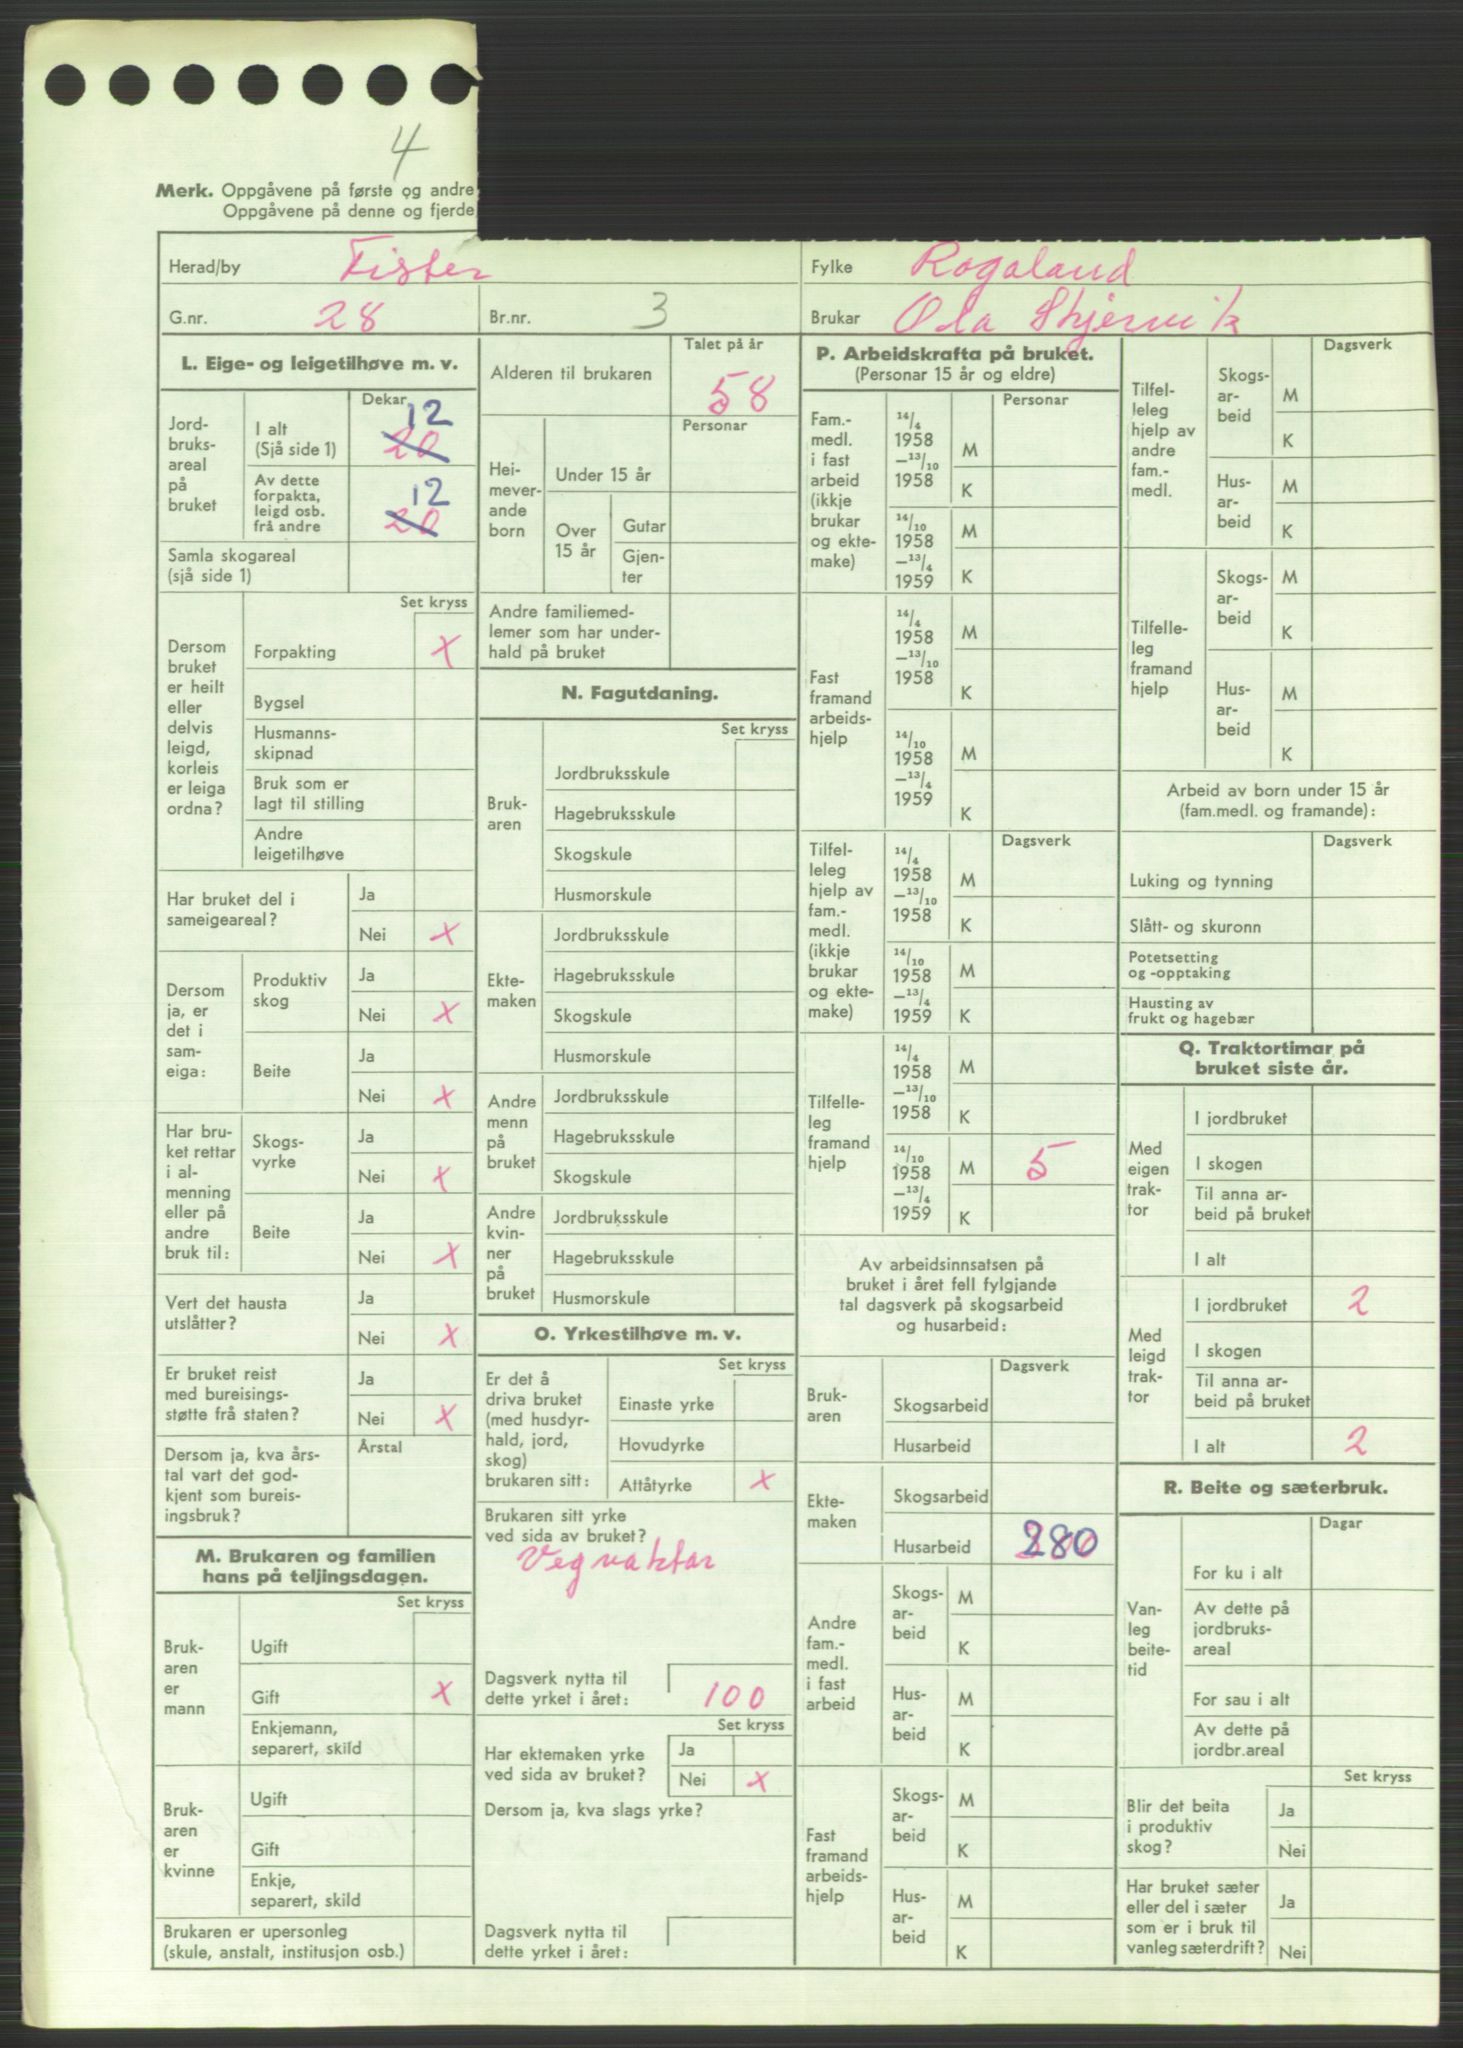 4
Merk. Oppgåvene på første og andre
Oppgåvene på denne og fjerde
Herad/by Fister
Fylke Rogaland
G.nr. 28
Br.nr. 3
Brukar Ola Skjervik
L. Eige- og leigetilhøve m. v.
Dekar
Jord-
bruks-
areal
på
bruket
I alt
(Sjå side 1)
12
20
Av dette
forpakta,
leigd osb.
frå andre
12
20
Samla skogareal
(sjå side 1)
Set kryss
Dersom
bruket
er heilt
eller
delvis
leigd,
korleis
er leiga
ordna?
Forpakting X
Bygsel
Husmanns-
skipnad
Bruk som er
lagt til stilling
Andre
leigetilhøve
Har bruket del i
sameigeareal?
Ja
Nei X
Dersom
ja, er
det i
sam-
eiga:
Produktiv
skog
Ja
Nei X
Beite
Ja
Nei X
Har bru-
ket rettar
i al-
menning
eller på
andre
bruk til:
Skogs-
vyrke
Ja
Nei X
Beite
Ja
Nei X
Vert det hausta
utslåtter?
Ja
Nei X
Er bruket reist
med bureisings-
støtte frå staten?
Ja
Nei X
Dersom ja, kva års-
tal vart det god-
kjent som bureis-
ingsbruk?
Årstal
M. Brukaren og familien
hans på teljingsdagen.
Set kryss
Bruk-
aren
er
mann
Ugift
Gift X
Enkjemann,
separert, skild
Bruk-
aren
er
kvinne
Ugift
Gift
Enkje,
separert, skild
Brukaren er upersonleg
(skule, anstalt, institusjon osb.)
Talet på år
Alderen til brukaren 58
Personar
Hei-
mever-
ande
born
Under 15 år
Over
15 år
Gutar
Gjen-
ter
Andre familiemed-
lemer som har under-
hald på bruket
N. Fagutdaning.
Set kryss
Bruk-
aren
Jordbruksskule
Hagebruksskule
Skogskule
Husmorskule
Ekte-
maken
Jordbruksskule
Hagebruksskule
Skogskule
Husmorskule
Andre
menn
på
bruket
Jordbruksskule
Hagebruksskule
Skogskule
Andre
kvin-
ner
på
bruket
Jordbruksskule
Hagebruksskule
Husmorskule
O. Yrkestilhøve m. v.
Set kryss
Er det å
driva bruket
(med husdyr-
hald, jord,
skog)
brukaren sitt:
Einaste yrke
Hovudyrke
Attåtyrke X
Brukaren sitt yrke
ved sida av bruket?
Vegvaktar
Dagsverk nytta til
dette yrket i året: 100
Set kryss
Har ektemaken yrke
ved sida av bruket?
Ja
Nei X
Dersom ja, kva slags yrke?
Dagsverk nytta til
dette yrket i året:
P. Arbeidskrafta på bruket.
(Personar 15 år og eldre)
Personar
Fam.-
medl.
i fast
arbeid
(ikkje
brukar
og ekte-
make)
14/4
1958
—13/10
1958
M
K
14/10
1958
—13/4
1959
M
K
Fast
framand
arbeids-
hjelp
14/4
1958
—13/10
1958
M
K
14/10
1958
—13/4
1959
M
K
Dagsverk
Tilfel-
leleg
hjelp av
fam.-
medl.
(ikkje
brukar
og ekte-
make)
14/4
1958
—13/10
1958
M
K
14/10
1958
—13/4
1959
M
K
Tilfelle-
leg
framand
hjelp
14/4
1958
—13/10
1958
M
K
14/10
1958
—13/4
1959
M 5
K
Av arbeidsinnsatsen på
bruket i året fell fylgjande
tal dagsverk på skogsarbeid
og husarbeid:
Dagsverk
Bruk-
aren
Skogsarbeid
Husarbeid
Ekte-
maken
Skogsarbeid
Husarbeid 280
Andre
fam.-
medl.
i fast
arbeid
Skogs-
ar-
beid
M
K
Hus-
ar-
beid
M
K
Fast
framand
arbeids-
hjelp
Skogs-
ar-
beid
M
K
Hus-
ar-
beid
M
K
Dagsverk
Tilfel-
leleg
hjelp av
andre
fam.-
medl.
Skogs-
ar-
beid
M
K
Hus-
ar-
beid
M
K
Tilfelle-
leg
framand
hjelp
Skogs-
ar-
beid
M
K
Hus-
ar-
beid
M
K
Arbeid av born under 15 år
(fam.medl. og framande):
Dagsverk
Luking og tynning
Slått- og skuronn
Potetsetting
og -opptaking
Hausting av
frukt og hagebær
Q. Traktortimar på
bruket siste år.
Med
eigen
trak-
tor
I jordbruket
I skogen
Til anna ar-
beid på bruket
I alt
Med
leigd
trak-
tor
I jordbruket 2
I skogen
Til anna ar-
beid på bruket
I alt 2
R. Beite og sæterbruk.
Dagar
Van-
leg
beite-
tid
For ku i alt
Av dette på
jordbruks-
areal
For sau i alt
Av dette på
jordbr.areal
Set kryss
Blir det beita
i produktiv
skog?
Ja
Nei
Har bruket sæter
eller del i sæter
som er i bruk til
vanleg sæterdrift?
Ja
Nei